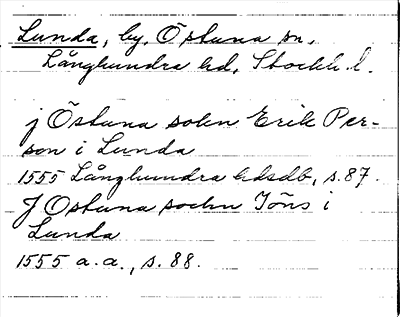 Lunda, by, Östuna sn,
Långhundra hd, Stockh. l.
j Östuna sokn Erik Per-
son i Lunda
1555 Långhundra hdsdb, s. 87.
J Ostuna sochn Jöns i
Lunda
1555 a. a., s. 88.